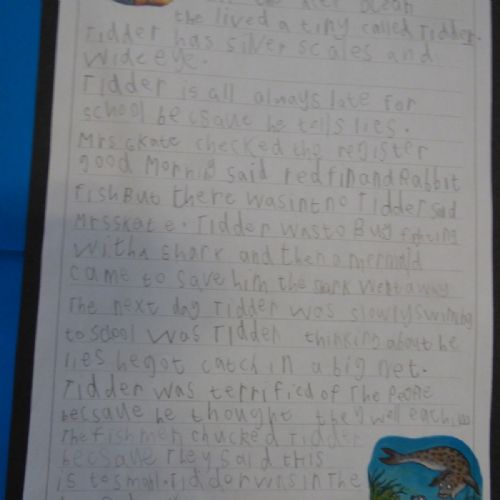 the lived a tiny called Tidder.
Tidder has silver scales and
wide eye.
Tidder is all always late for
school becsaue he tells lies.
Mrs skate checked the register
good Morning said redfin and Rabbit
fish But there wasint no Tidder said
Mrs skate. Tidder was to Busy fighting
with a shark and then a mermaid
came to save him the shark went away
The next day Tidder was slowly swimming
to school was Tidder thinking about he
lies he got catch in a big net.
Tidder was terrified of The People
becsaue he thought they well each him
The fish men chucked Tidder
becsaue They said THIS
is to small. Tidder was in The